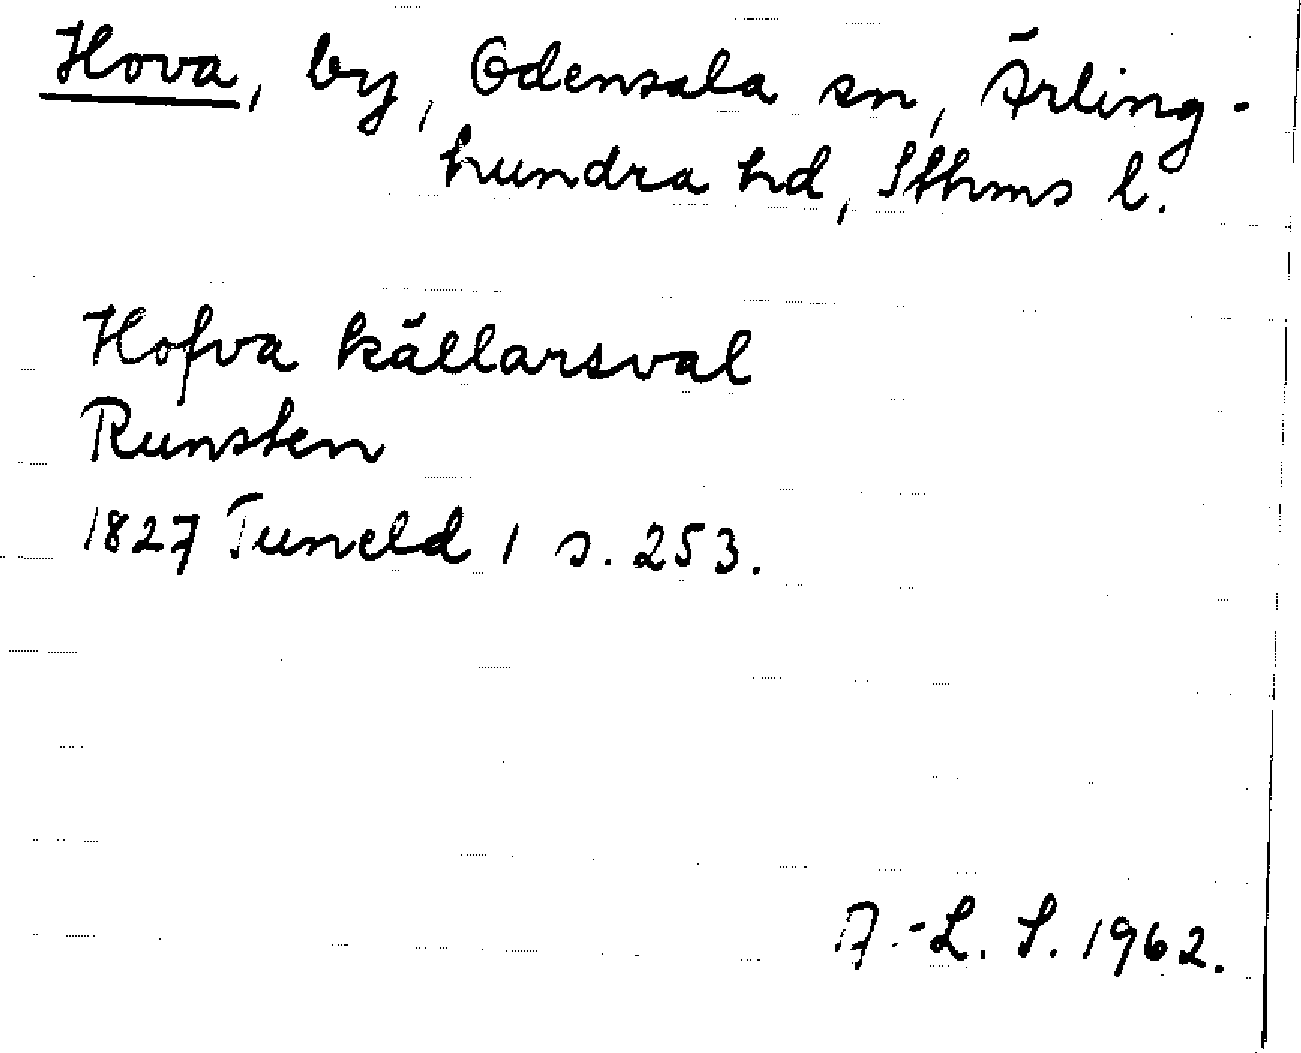 Hova, by, Odensala sn, Ärling-
hundra hd, Sthms l.
Hofva källarsval
Runsten
1827 Tuneld 1 s. 253.
A.-L. S. 1962.